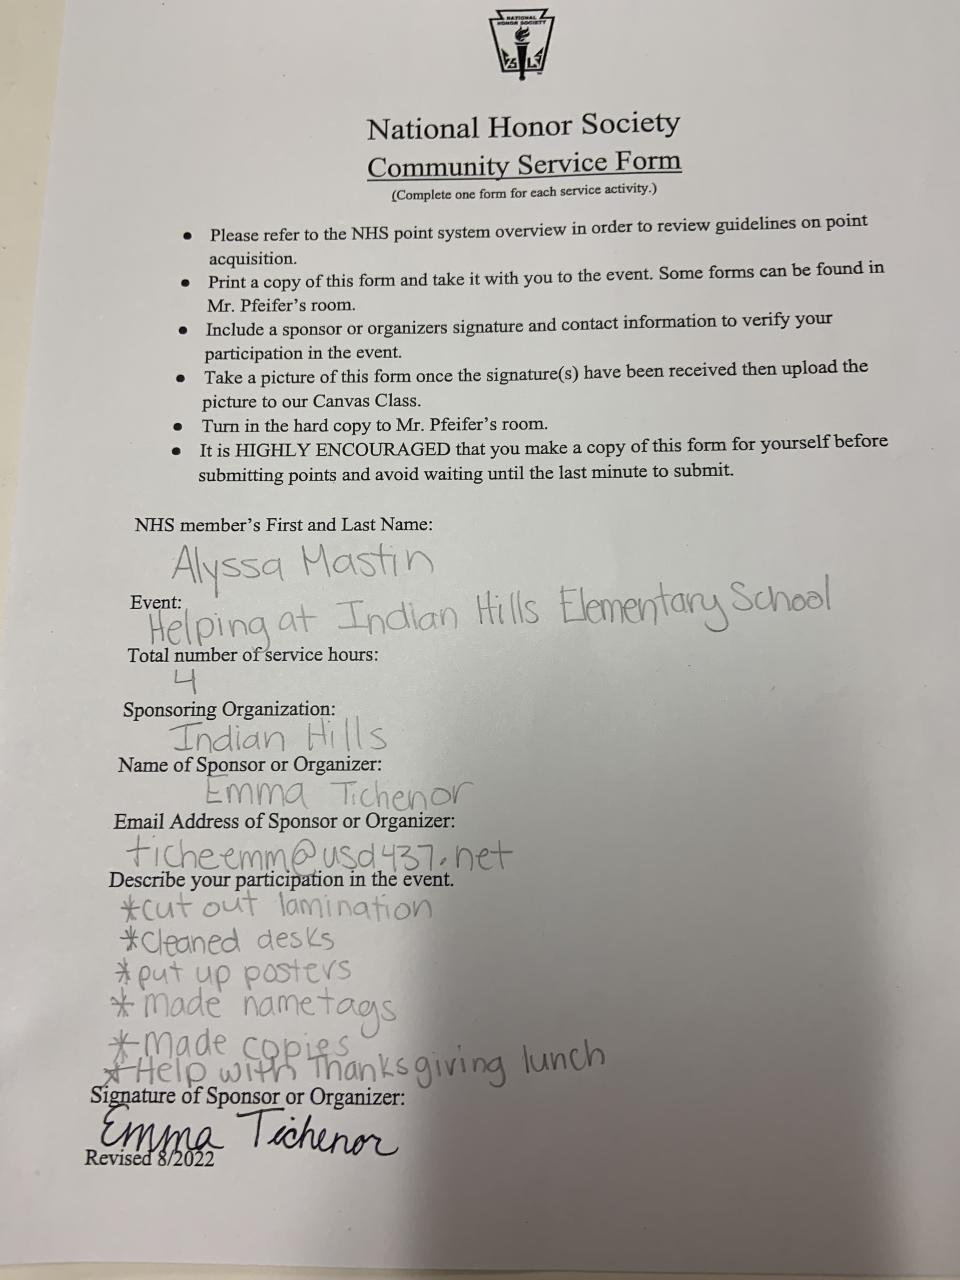 NATIONAL
HONOR SOCIETY
National Honor Society
Community Service Form
(Complete one form for each service activity.)
• Please refer to the NHS point system overview in order to review guidelines on point
acquisition.
• Print a copy of this form and take it with you to the event. Some forms can be found in
Mr. Pfeifer's room.
• Include a sponsor or organizers signature and contact information to verify your
participation in the event.
• Take a picture of this form once the signature(s) have been received then upload the
picture to our Canvas Class.
• Turn in the hard copy to Mr. Pfeifer's room.
• It is HIGHLY ENCOURAGED that you make a copy of this form for yourself before
submitting points and avoid waiting until the last minute to submit.
NHS member's First and Last Name:
Alyssa Mastin
Event:
Helping at Indian Hills Elementary School
Total number of service hours:
4
Sponsoring Organization:
Indian Hills
Name of Sponsor or Organizer:
Emma Tichenor
Email Address of Sponsor or Organizer:
ticheemm@usd437.net
Describe your participation in the event.
*cut out lamination
*cleaned desks
*put up posters
*made nametags
*made copies
*Help with Thanksgiving lunch
Signature of Sponsor or Organizer:
Emma Tichenor
Revised 8/2022